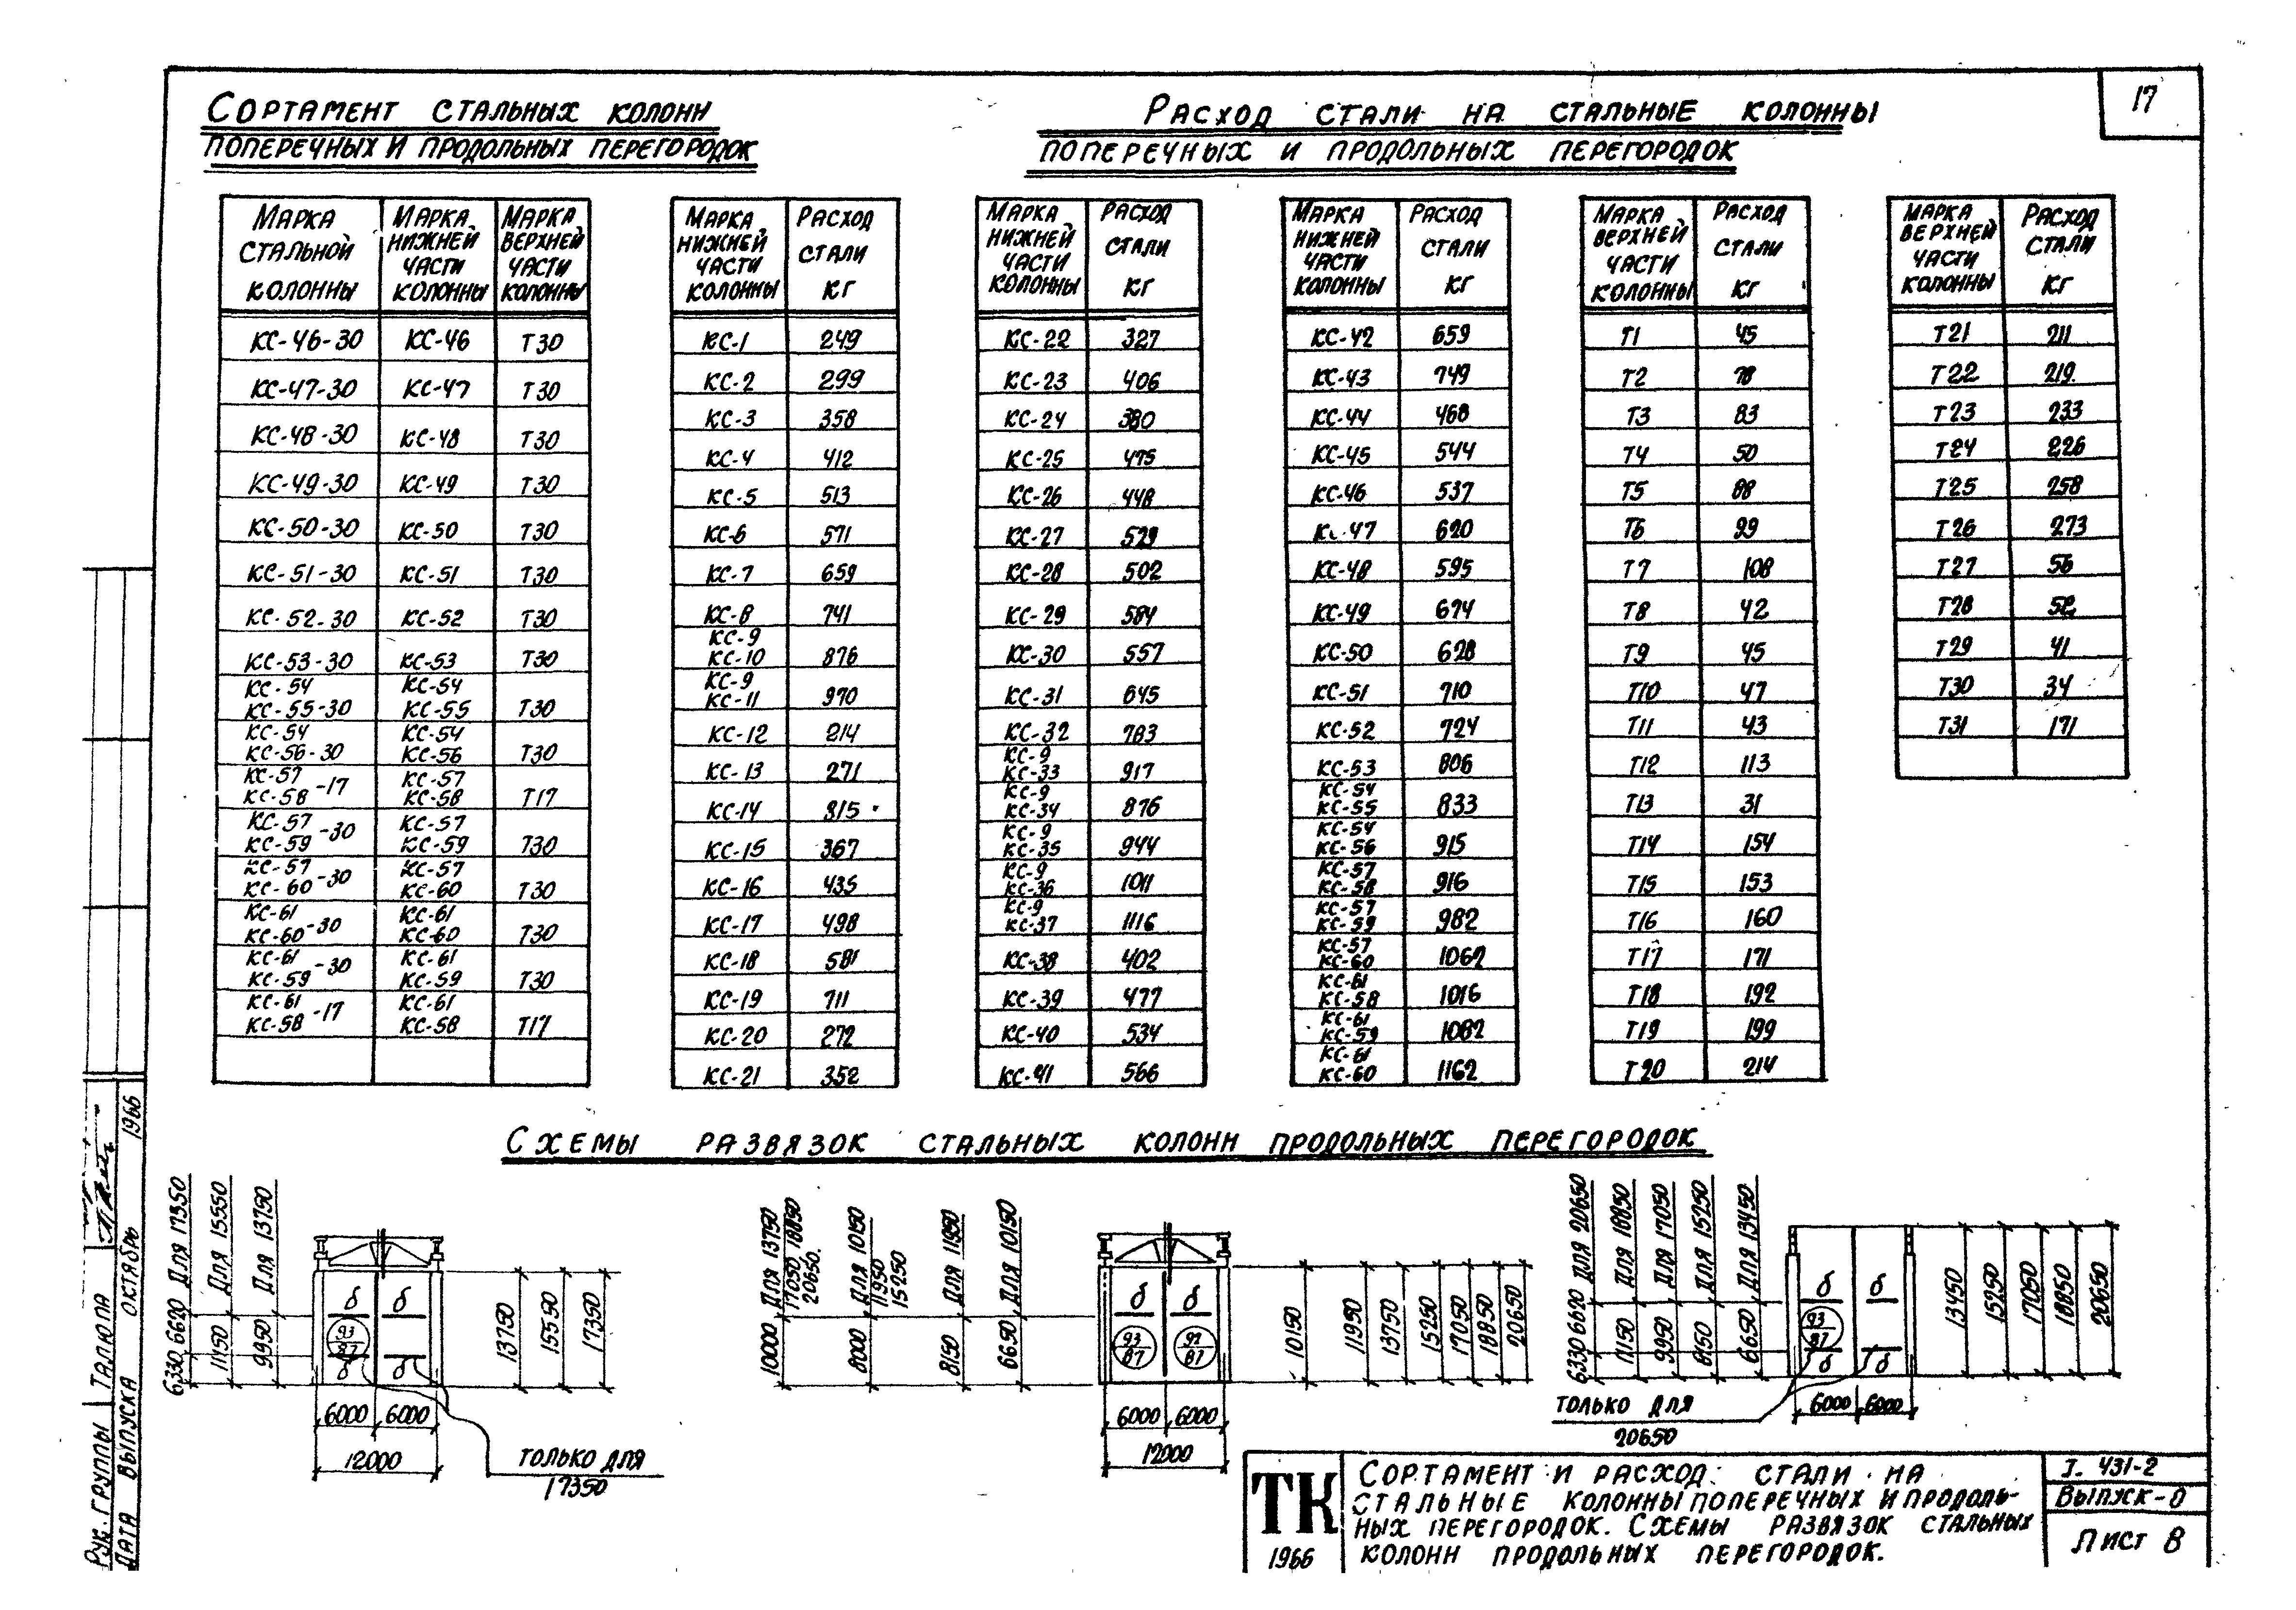 17
Сортамент стальных колонн
поперечных и продольных перегородок
Расход стали на стальные колонны
поперечных и продольных перегородок
Марка стальной колонны | Марка нижней части колонны | Марка верхней части колонны
КС-46-30 | КС-46 | Т30
КС-47-30 | КС-47 | Т30
КС-48-30 | КС-48 | Т30
КС-49-30 | КС-49 | Т30
КС-50-30 | КС-50 | Т30
КС-51-30 | КС-51 | Т30
КС-52-30 | КС-52 | Т30
КС-53-30 | КС-53 | Т30
КС-54 КС-55-30 | КС-54 КС-55 | Т30
КС-54 КС-56-30 | КС-54 КС-56 | Т30
КС-57 КС-58 -17 | КС-57 КС-58 | Т17
КС-57 КС-59 -30 | КС-57 КС-59 | Т30
КС-57 КС-60 -30 | КС-57 КС-60 | Т30
КС-61 КС-60 -30 | КС-61 КС-60 | Т30
КС-61 КС-59 -30 | КС-61 КС-59 | Т30
КС-61 КС-58 -17 | КС-61 КС-58 | Т17
Марка нижней части колонны | Расход стали кг
КС-1 | 249
КС-2 | 299
КС-3 | 358
КС-4 | 412
КС-5 | 513
КС-6 | 571
КС-7 | 659
КС-8 | 741
КС-9 КС-10 | 876
КС-9 КС-11 | 970
КС-12 | 214
КС-13 | 271
КС-14 | 315
КС-15 | 367
КС-16 | 435
КС-17 | 498
КС-18 | 581
КС-19 | 711
КС-20 | 272
КС-21 | 352
Марка нижней части колонны | Расход стали кг
КС-22 | 327
КС-23 | 406
КС-24 | 380
КС-25 | 475
КС-26 | 448
КС-27 | 529
КС-28 | 502
КС-29 | 584
КС-30 | 557
КС-31 | 645
КС-32 | 783
КС-9 КС-33 | 917
КС-9 КС-34 | 876
КС-9 КС-35 | 944
КС-9 КС-36 | 1011
КС-9 КС-37 | 1116
КС-38 | 402
КС-39 | 477
КС-40 | 534
КС-41 | 566
Марка нижней части колонны | Расход стали кг
КС-42 | 659
КС-43 | 749
КС-44 | 468
КС-45 | 544
КС-46 | 537
КС-47 | 620
КС-48 | 595
КС-49 | 674
КС-50 | 628
КС-51 | 710
КС-52 | 724
КС-53 | 806
КС-54 КС-55 | 833
КС-54 КС-56 | 915
КС-57 КС-58 | 916
КС-57 КС-59 | 982
КС-57 КС-60 | 1062
КС-61 КС-58 | 1016
КС-61 КС-59 | 1082
КС-61 КС-60 | 1162
Марка верхней части колонны | Расход стали кг
Т1 | 45
Т2 | 78
Т3 | 83
Т4 | 50
Т5 | 88
Т6 | 99
Т7 | 108
Т8 | 42
Т9 | 45
Т10 | 47
Т11 | 43
Т12 | 113
Т13 | 31
Т14 | 154
Т15 | 153
Т16 | 160
Т17 | 171
Т18 | 192
Т19 | 199
Т20 | 214
Марка верхней части колонны | Расход стали кг
Т21 | 211
Т22 | 219
Т23 | 233
Т24 | 226
Т25 | 258
Т26 | 273
Т27 | 56
Т28 | 52
Т29 | 41
Т30 | 34
Т31 | 171
Схемы развязок стальных колонн продольных перегородок
6330 6620 Для 17350
11150 Для 15550
9950 Для 13750
б б
93
87
б б
13750
15550
17350
6000 6000
12000
только для
17350
10000 Для 13750
17050, 18850
20650.
8000 Для 10150
11950
15250
8150 Для 11950
6650 Для 10150
б б
93
87
92
87
10150
11950
13750
15250
17050
18850
20650
6000 6000
12000
6330 6620 Для 20650
11150 Для 18850
9950 Для 17050
8150 Для 15250
6650 Для 13450
б б
93
87
б б
13450
15250
17050
18850
20650
6000 6000
только для
20650
ТК
1966
Сортамент и расход стали на
стальные колонны поперечных и продоль-
ных перегородок. Схемы развязок стальных
колонн продольных перегородок.
I. 431-2
Выпуск-0
Лист 8
Рук. группы Талюпа
Дата выпуска октябрь 1966